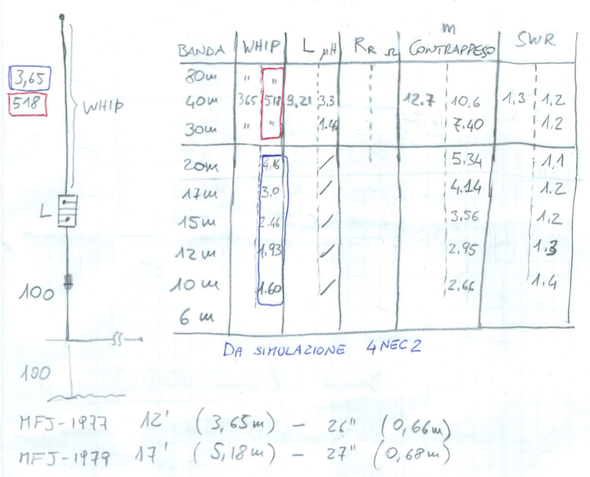 3,65
518
WHIP
L
100
100
BANDA WHIP L μH RR Ω m CONTRAPPESO SWR
80m " "
40m 365 518 9,21 3.3 12.7 10.6 1.3 1.2
30m " " 1.46 7.40 1.2
20m 4.16 / 5.34 1.1
17m 3.0 / 4.14 1.2
15m 2.46 / 3,56 1.2
12m 1,93 / 2.95 1.3
10m 1.60 / 2.66 1.4
6m
DA SIMULAZIONE 4NEC2
MFJ-1977 12' (3,65m) - 26" (0,66m)
MFJ-1979 17' (5,18m) - 27" (0,68m)